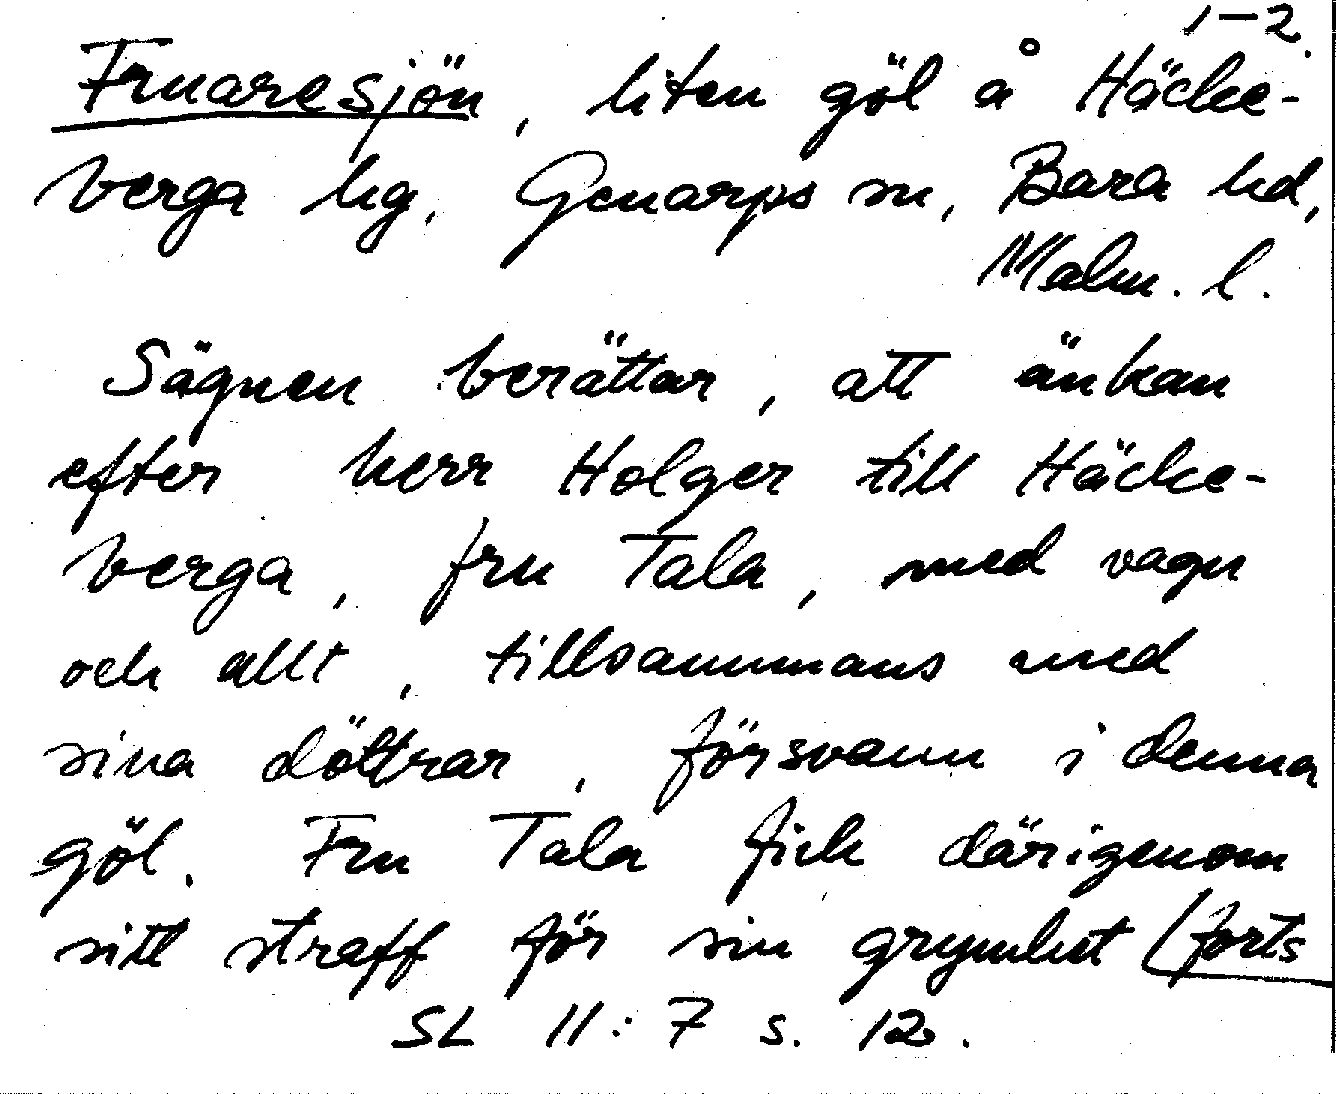 1–2.
Fruaresjön, liten göl å Häcke-
berga hg, Genarps sn, Bara hd,
Malm. l.
Sägnen berättar, att änkan
efter herr Holger till Häcke-
berga, fru Tala, med vagn
och allt, tillsammans med
sina döttrar, försvann i denna
göl. Fru Tala fick därigenom
sitt straff för sin grymhet (forts
SL 11:7 s. 12.